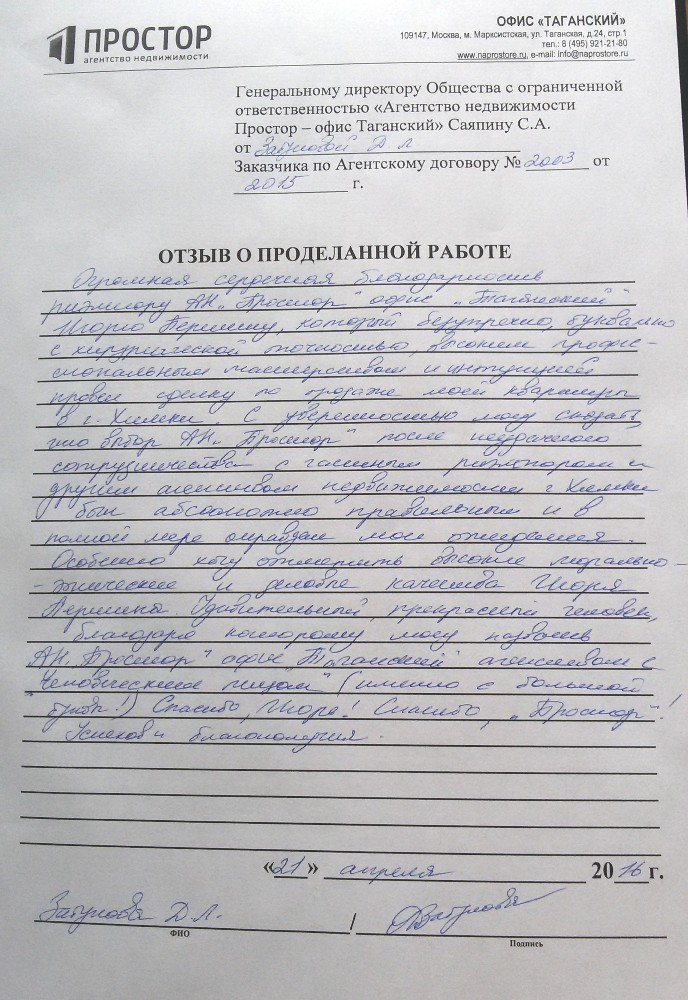 ПРОСТОР
агентство недвижимости
ОФИС «ТАГАНСКИЙ»
109147, Москва, м. Марксистская, ул. Таганская, д.24, стр.1
тел.: 8 (495) 921-21-80
www.naprostore.ru, e-mail: info@naprostore.ru
Генеральному директору Общества с ограниченной
ответственностью «Агентство недвижимости
Простор – офис Таганский» Саяпину С.А.
от Затуловой Д Л
Заказчика по Агентскому договору № 2003 от
2015 г.
ОТЗЫВ О ПРОДЕЛАННОЙ РАБОТЕ
Огромная сердечная благодарность
риэлтору АН „Простор" офис „Таганский"
Игорю Першину, который безупречно, буквально
с хирургической точностью, высоким профес-
сиональным мастерством и интуицией
провел сделку по продаже моей квартиры
в г. Химки. С уверенностью могу сказать,
что выбор АН „Простор" после неудачного
сотрудничества с частным риэлтором и
другим агентством недвижимости г. Химки
был абсолютно правильным и в
полной мере оправдал мои ожидания.
Особенно хочу отметить высокие морально-
-этические и деловые качества Игоря
Першина. Удивительный, прекрасный человек,
благодаря которому могу назвать
АН „Простор" офис „Таганский" агентством с
„Человеческим лицом" (именно с большой
буквы!) Спасибо, Игорь! Спасибо, „Простор"!
Успехов и благополучия.
«21» апреля 2016 г.
Затулова Д. Л. /
ФИО
Подпись